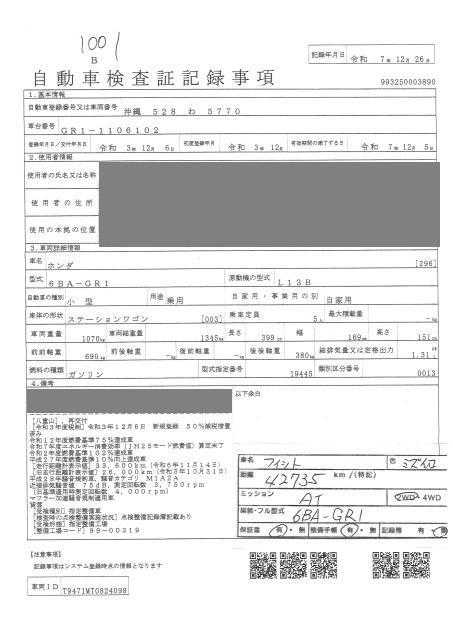 1001
B
記録年月日 令和 7年 12月 26日
自動車検査証記録事項
993250003890
1.基本情報
自動車登録番号又は車両番号 沖縄 528 わ 5770
車台番号 GR1-1106102
登録年月日/交付年月日 令和 3年 12月 6日 初度登録年月 令和 3年 12月 有効期間の満了する日 令和 7年 12月 5日
2.使用者情報
使用者の氏名又は名称
使用者の住所
使用の本拠の位置
3.車両詳細情報
車名 ホンダ [296]
型式 6BA-GR1 原動機の型式 L13B
自動車の種別 小型 用途 乗用 自家用・事業用の別 自家用
車体の形状 ステーションワゴン [003] 乗車定員 5人 最大積載量 -kg
車両重量 1070kg 車両総重量 1345kg 長さ 399cm 幅 169cm 高さ 151cm
前前軸重 690kg 前後軸重 -kg 後前軸重 -kg 後後軸重 380kg 総排気量又は定格出力 1.31L
燃料の種類 ガソリン 型式指定番号 19445 類別区分番号 0013
4.備考
以下余白
[八重山],再交付
[令和3年度税制]令和3年12月6日 新規登録 50%減税措置
済み
令和12年度燃費基準75%達成車
令和7年度エネルギー消費効率(JH25モード燃費値)算定未了
令和2年度燃費基準102%達成車
平成27年度燃費基準10%向上達成車
[走行距離計表示値]33,600km(令和6年11月14日)
[旧走行距離計表示値]26,000km(令和5年10月31日)
平成28年騒音規制車,騒音カテゴリ M1A2A
近接排気騒音値 75dB,測定回転数 3,750rpm
[旧基準適用時測定回転数 4,000rpm]
マフラー加速騒音規制適用車
[受検種別]指定整備車
[検査時の点検整備実施状況]点検整備記録簿記載あり
[受検形態]指定整備工場
[整備工場コード]99-00319
車名 フィット 色
距離 42735 km/(特記)
ミッション AT 2WD・4WD
類別・フル型式 6BA-GR1
保証書 有・無 整備手帳 有・無 記録簿 有・無
【注意事項】
記録事項はシステム登録時点の情報となります
車両ID T9471MT0824098